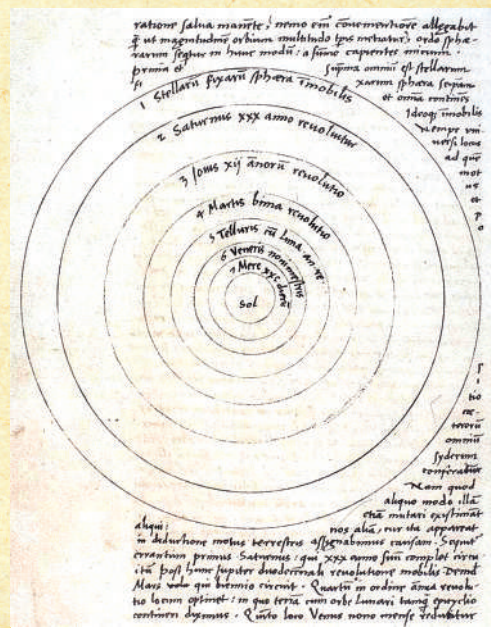 ratione salva manēte, nemo em̄ cōvenientiorē allegabit
q̄ ut magnitudinē orbium multitudo tp̄is metiatur, ordo sphæ-
rarum seqtur in hunc modū: a sūmo capientes initium.
prima et suprema omniū est stellarum
fixarum sphæra seipsam
et omīa continēs
Ideoq̄ īmobilis
Nempe uni
versi locus
ad quē
mot
us
et
p
o
1 Stellarū fixarū sphæra īmobilis
2 Saturnus xxx anno revolvitur
3 Jovis xij annorū revolutio
4 Martis bima revolutio
5 Telluris cū luna an. re.
6 Veneris nonimestris
7 Merc xxc dierū
Sol
s
i
tio
cæ-
terorū
omniū
syderum
conferatur
Nam quod
aliquo modo illā
etiā mutari existimāt
aliqui: nos aliā, cur ita appareat
in deductione motus terrestris assignabimus causam. Sequit
errantium primus Saturnus: qui xxx anno suū complet circu
itū Post hunc Jupiter duodecennali revolutione mobilis Deinde
Mars qui biennio circuit. Quartū in ordine annua revolu-
tio locum optinet: in quo terrā cum orbe Lunari tanq̄ epicyclio
contineri diximus. Quinto loco Venus nono mense reducitur